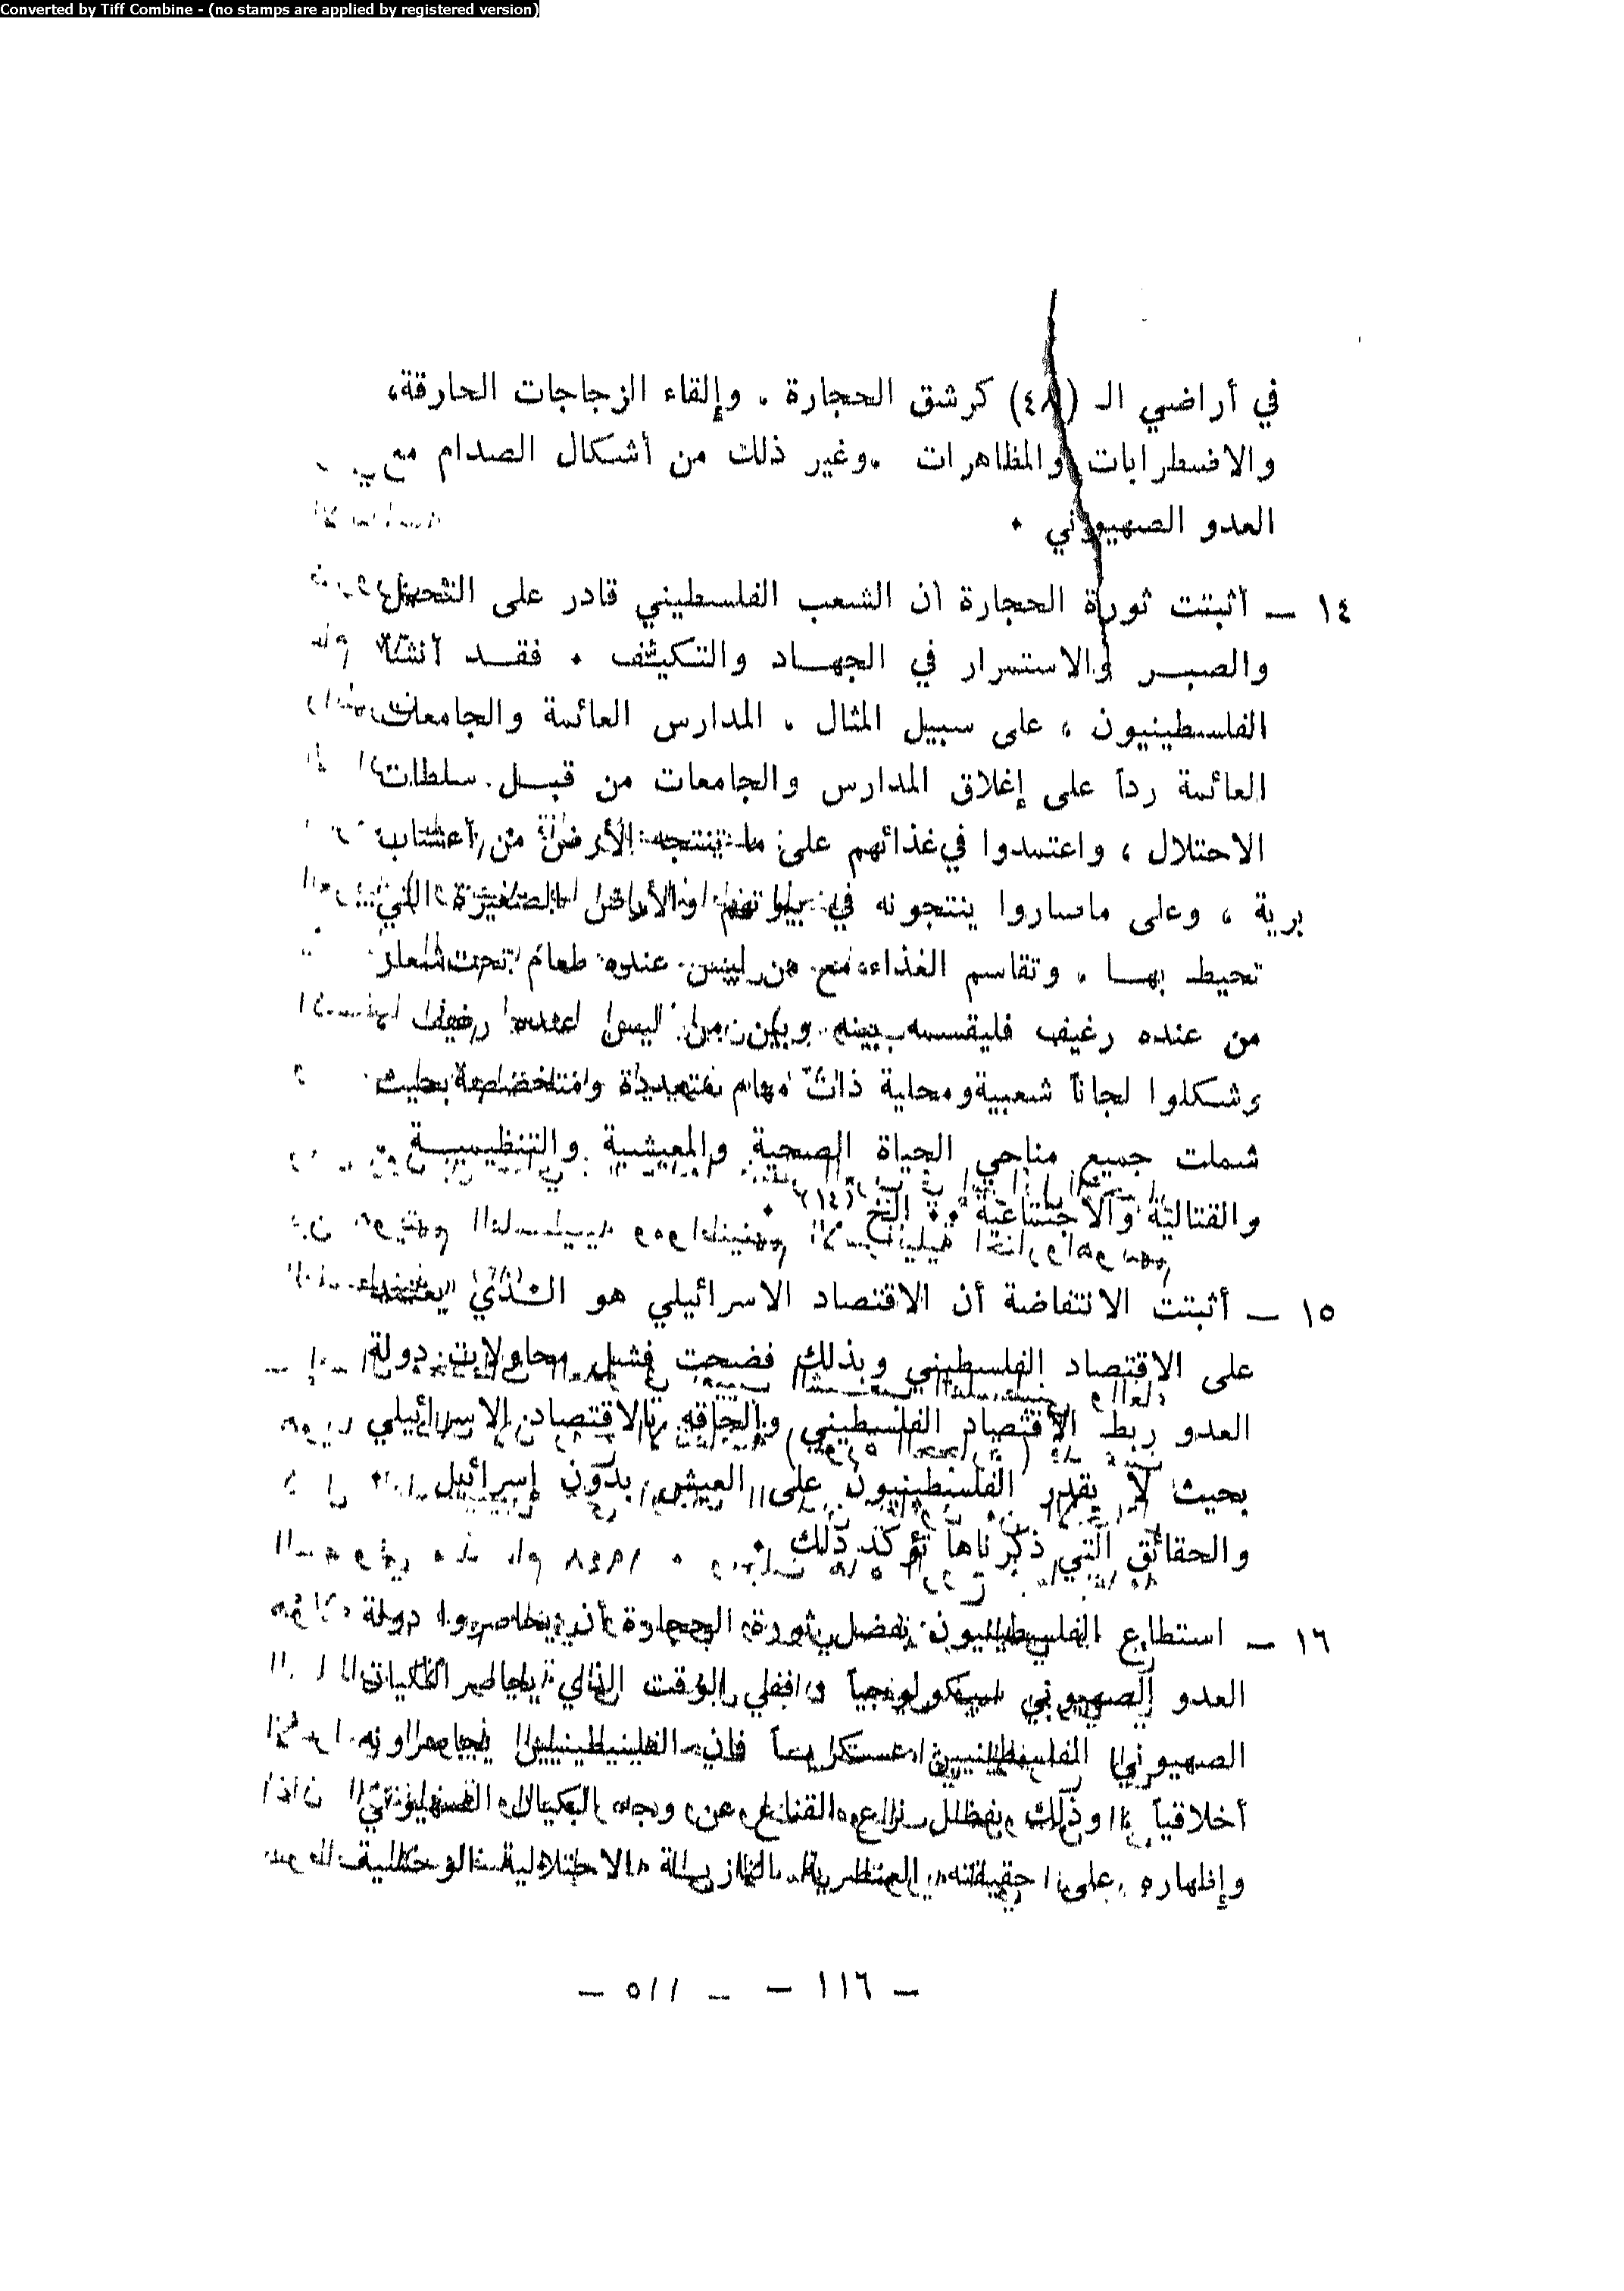 Converted by Tiff Combine - (no stamps are applied by registered version)
في أراضي الـ (٤٨) كرشق الحجارة ، وإلقاء الزجاجات الحارقة،
والاضطرابات والمظاهرات ،وغير ذلك من أشكال الصدام مع
العدو الصهيوني •
١٤ — أثبتت ثورة الحجارة أن الشعب الفلسطيني قادر على التحمل
والصبر والاستمرار في الجهاد والتكيف • فقد أنشأ
الفلسطينيون ، على سبيل المثال ، المدارس العائمة والجامعات
العائمة رداً على إغلاق المدارس والجامعات من قبل سلطات
الاحتلال ، واعتمدوا في غذائهم على ما تنتجه الأرض من أعشاب
برية ، وعلى ماصاروا ينتجونه في بيوتهم والأراضي الصغيرة التي
تحيط بها ، وتقاسم الغذاء مع من ليس عنده طعام تحت شعار
من عنده رغيف فليقسمه بينه وبين من ليس عنده رغيف
وشكلوا لجاناً شعبية ومحلية ذات مهام متعددة ومتخصصة بحيث
شملت جميع مناحي الحياة الصحية والمعيشية والتنظيمية
والقتالية والاجتماعية •• الخ (١٤) •
١٥ — أثبتت الانتفاضة أن الاقتصاد الاسرائيلي هو الذي يعتمد
على الاقتصاد الفلسطيني وبذلك فضحت فشل محاولات دولة
العدو ربط الاقتصاد الفلسطيني وإلحاقه بالاقتصاد الاسرائيلي
بحيث لا يقدر الفلسطينيون على العيش بدون إسرائيل
والحقائق التي ذكرناها تؤكد ذلك •
١٦ — استطاع الفلسطينيون بفضل ثورة الحجارة أن يحاصروا دولة
العدو الصهيوني سيكولوجياً ففي الوقت الذي يحاصر الكيان
الصهيوني الفلسطينيين عسكرياً فإن الفلسطينيين يحاصرونه
أخلاقياً وذلك بفضل نزع القناع عن وجه الكيان الصهيوني
وإظهاره على حقيقته العنصرية النازية الاحتلالية
— ١١٦ —